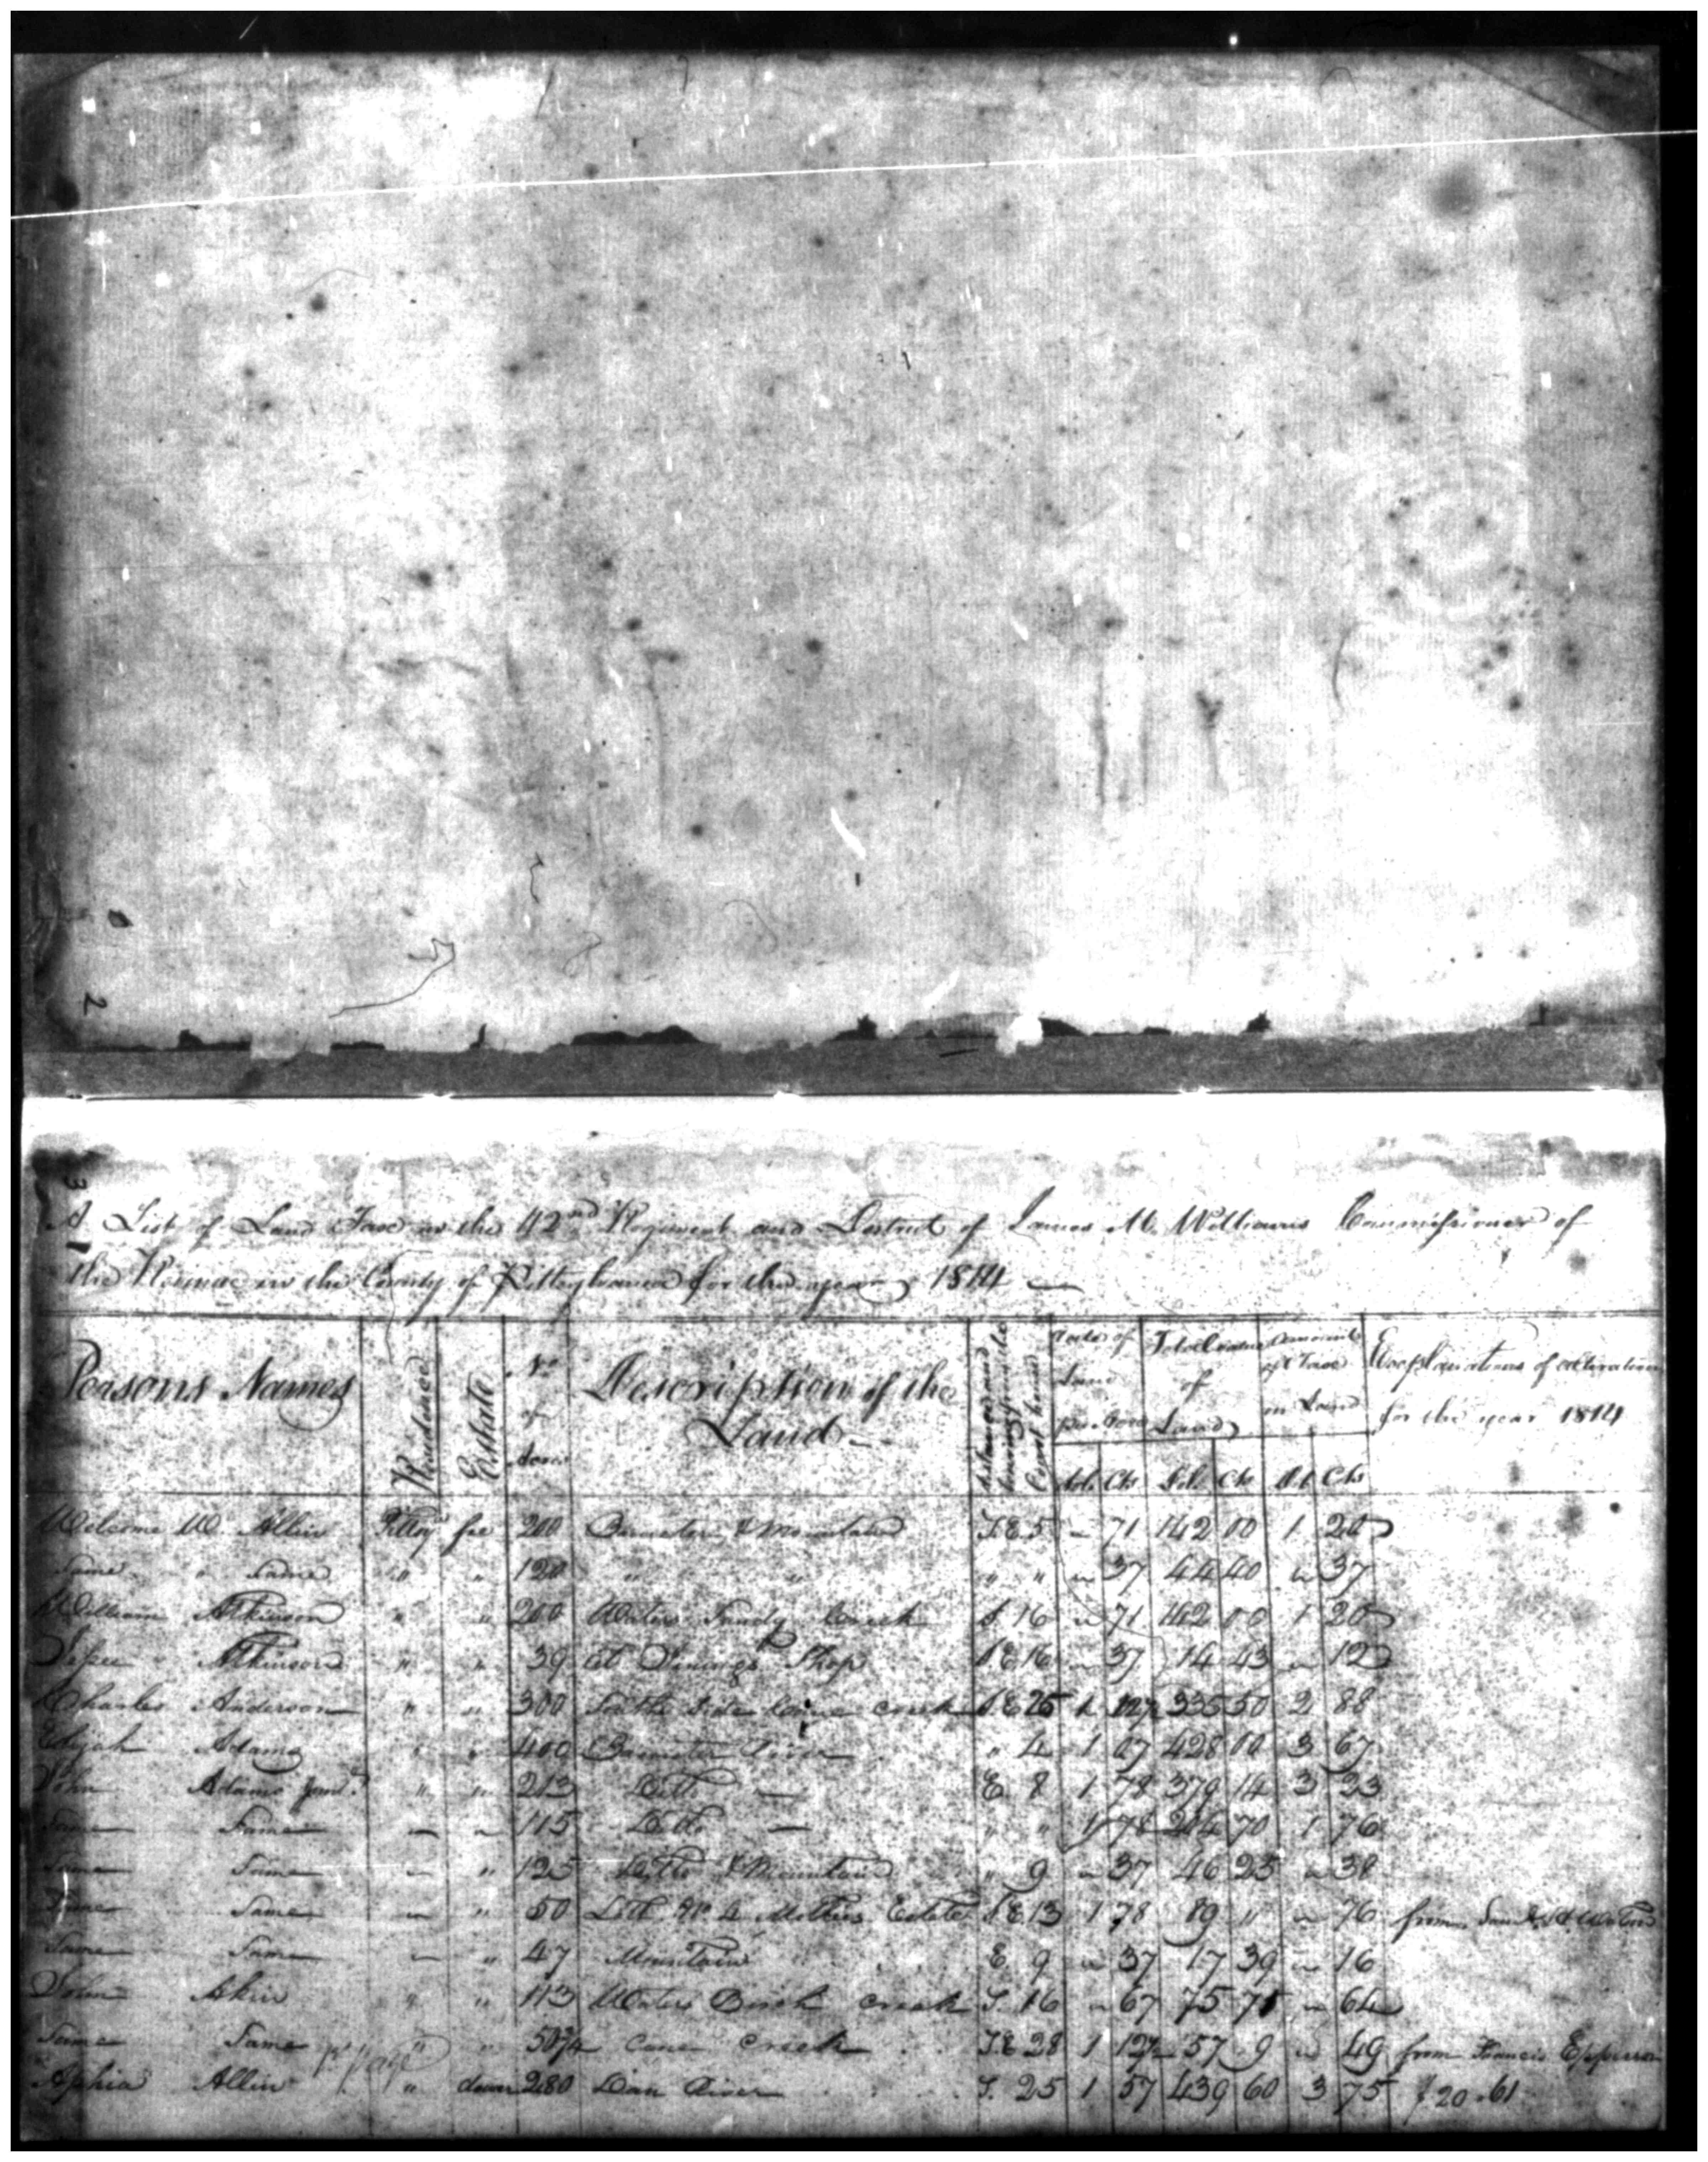 2
3
A List of Land Tax in the 42nd Regiment and District of James M. Williams Commissioner of
the Revenue in the County of Pittsylvania for the year 1814
Persons Names Residence Estate No of Acres Description of the Land Distance and bearing from the Court house Rate of Land per Acre Total value of Land Amount of Tax on Land Explanations of alterations for the year 1814
Dol. Cts Dol. Cts D. Cts
Welcome W. Allin Pittsy fee 200 Banister & Mountain S.E 5 " 71 142 00 1 20
Same " Same " " 120 " " " " " 37 44 40 " 37
William Atkinson " " 200 Waters Sandy Creek S. 16 " 71 142 00 1 20
Jesse Atkinson " " 39 At Vinings Shop S E 16 " 37 14 43 " 12
Charles Anderson " " 300 South side Cane creek S.E 25 1 12½ 335 50 2 88
Elijah Adams " " 400 Banister River " 4 1 07 428 00 3 67
John Adams Junr. " " 213 Ditto E. 8 1 78 379 14 3 23
Same Same " " 115 Ditto " " 1 78 204 70 1 76
Same Same " " 125 Ditto & Mountain " 9 " 37 46 25 " 38
Same Same " " 50 Ditto Estate S.E 13 1 78 89 " " 76 from
Same Same " " 47 Mountain E. 9 " 37 17 39 " 16
John Akin " " 113 Waters Birch creek S. 16 " 67 75 71 " 64
Same Same " " 50¾ Cane Creek S.E 28 1 12½ 57 9 " 49 from Francis Epperson
Aphia Allin " dower 280 Dan River S. 25 1 57 439 60 3 75 $20.61
pr page